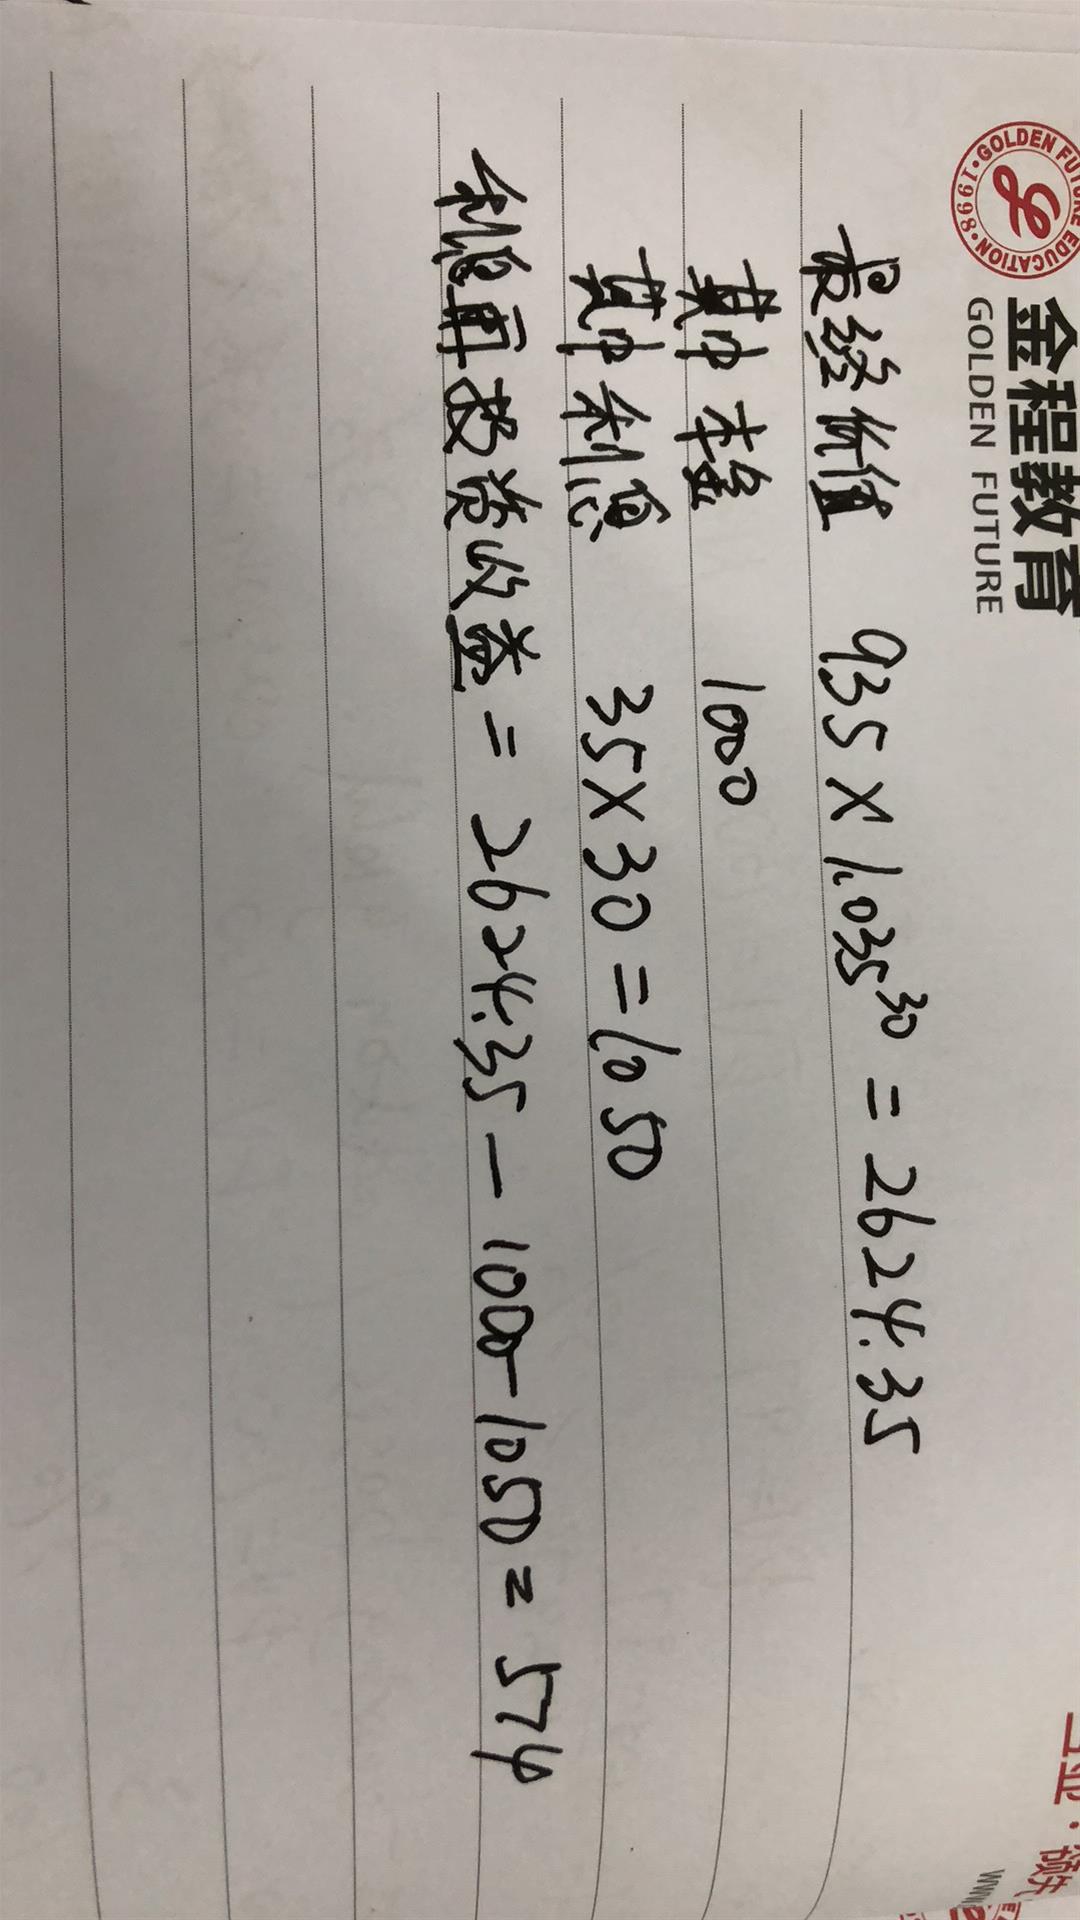 GOLDEN FUTURE EDUCATION
·1998·
金程教育
GOLDEN FUTURE
最终价值 935×1.035³⁰=2624.35
其中本金 1000
其中利息 35×30=1050
利息再投资收益=2624.35-1000-1050=574
www